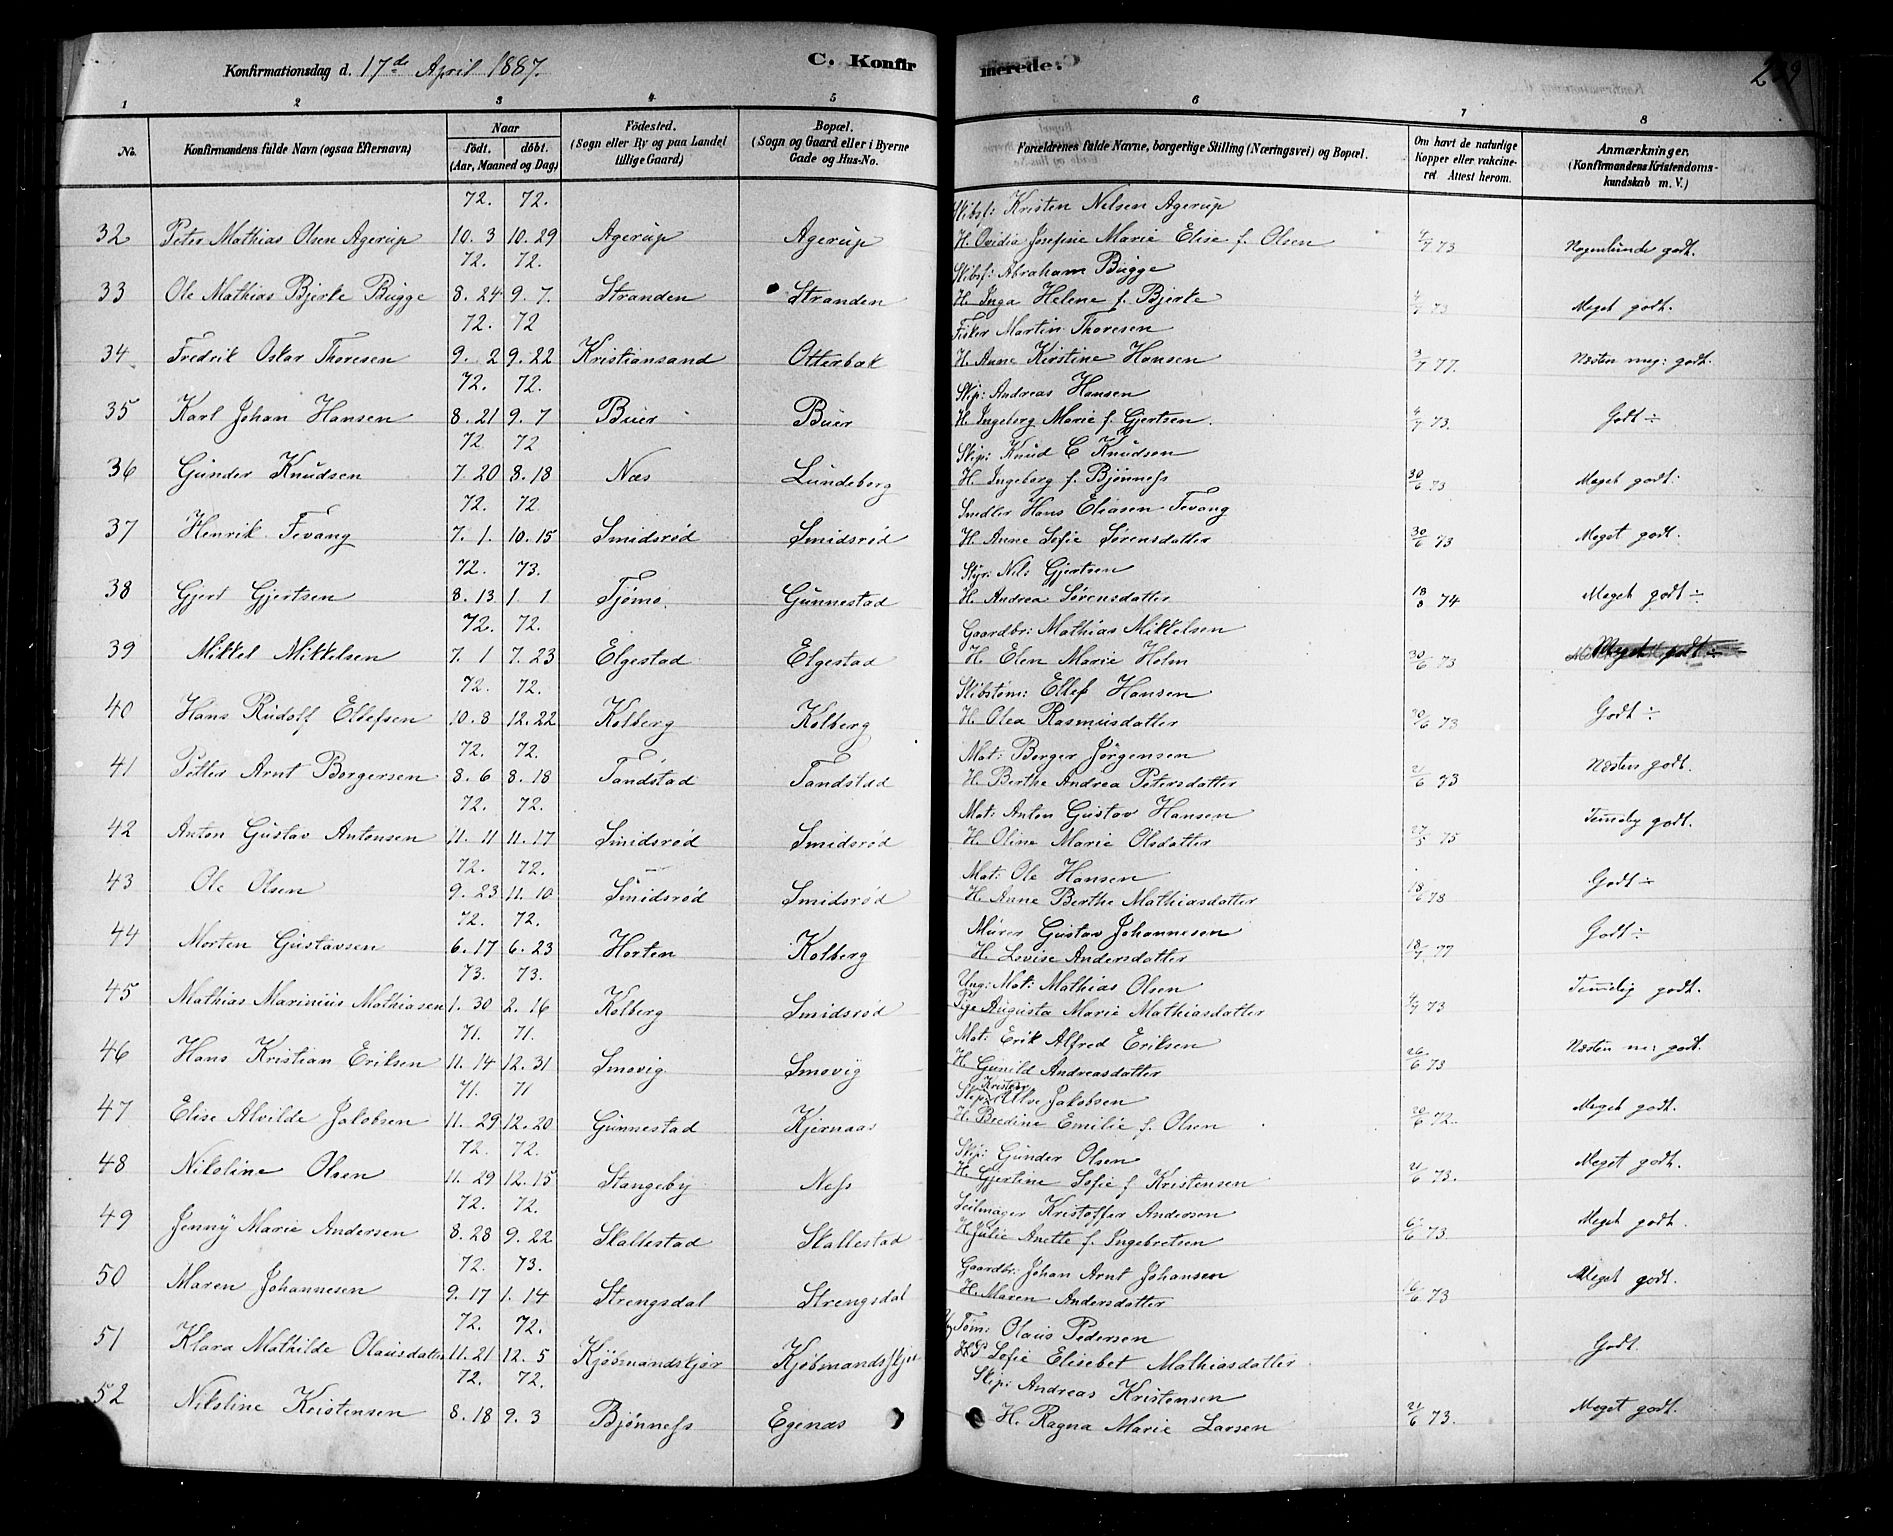 Konfirmationsdag d. 17de April 1887. C. Konfirmerede. 
1 2 3 4 5 6 7 8
No. Konfirmandens fulde Navn (ogsaa Efternavn) Naar födt. döbt. (Aar, Maaned og Dag) Födested. (Sogn eller By og paa Landet tillige Gaard) Bopæl. (Sogn og Gaard eller i Byerne Gade og Hus-No. Forældrenes fulde Navne, borgerlige Stilling (Næringsvei) og Bopæl. Om havt de naturlige Kopper eller vakcineret Attest herom. Anmærkninger, (Konfirmandens Kristendomskundskab m. V.)
72. 72. Skibsf: Kristen Nilsen Agerup
32 Peter Mathias Olsen Agerup 10. 3 10. 29 Agerup Agerup H. Ovidia Josefine Marie Elise f. Olsen 4/7 73 Nogenlunde godt.
72. 72. Skibsf: Abraham Bugge
33 Ole Mathias Bjerke Bugge 8. 24 9. 7. Stranden Stranden H. Inga Helene f. Bjerke 73 Meget godt.
72. 72 Fisker Martin Thoresen
34 Fredrik Oskar Thoresen 9. 2 9. 22 Kristiansand Otterbæk H. Anne Kirstine Hansen 3/7 77. Næsten meg: godt.
72. 72. Skip: Andreas Hansen
35 Karl Johan Hansen 8. 21 9. 7 Buer Buer H. Ingeborg Marie f. Gjertsen. 4/7 73. Godt ÷
72 72 Skip: Knud C Knudsen
36 Gunder Knudsen 7. 20 8. 18 Næs Lundeberg H. Ingeborg f. Bjønness 30/6 73 Meget godt.
72. 72 Snedker Hans Eliasen Fevang
37 Henrik Fevang 7. 1. 10. 15 Smidsrød Smidsrød H. Anne Sofie Sørensdatter 30/6 73 Meget godt.
72. 73. Styr: Nils Gjertsen
38 Gjert Gjertsen 8. 13 1. 1 Tjømo. Gunnestad H. Andrea Sørensdatter 18/8 74 Meget godt ÷
72. 72. Gaardbr: Mathias Mikkelsen
39 Mikkel Mikkelsen 7. 1 7. 23 Elgestad Elgestad H. Elen Marie Holm 30/6 73 Meget godt ÷
72. 72. Skibstøm: Ellef Hansen
40 Hans Rudolf Ellefsen 10. 8 12. 22 Kolberg Kolberg H. Olea Rasmusdatter 20/6 73 Godt ÷
72. 72. Mat: Borger Jörgensen
41 Petter Arnt Borgersen 8. 6 8. 18 Tandstad Tandstad H. Berthe Andrea Petersdatter 21/6 73 Næsten godt.
72. 72. Mat: Anton Gustav Hansen
42 Anton Gustav Antonsen 11. 11 11. 17 Smidsrød Smidsrød H. Oline Marie Olsdatter 27/5 75 Temelig godt.
72. 72. Mat: Ole Hansen
43 Ole Olsen 9. 23 11. 10 Smidsrød Smidsrød H. Anne Berthe Mathiasdatter 18/6 73 Godt ÷
72. 72. Murer Gustav Johannesen
44 Morten Gustavsen 6. 17 6. 23 Horten Kolberg H. Lovise Andersdatter 18/7 77 Godt ÷
73. 73. Ung: Mat: Mathias Olsen
45 Mathias Marinius Mathiasen 1. 30 2. 16 Kolberg Smidsrød Pige Augusta Marie Mathiasdatter 4/7 73 Temelig godt.
71. 71. Mat: Erik Alfred Eriksen
46 Hans Kristian Eriksen 11. 14 12. 31 Smovig Smovig H Gunild Andreasdatter 26/6 73 Næsten m: godt.
71. 71 Skip: Kristofer Ulve Jakobsen
47 Elise Alvilde Jakobsen 11. 29 12. 20 Gunnestad Kjernaas H. Bredine Emilie f. Olsen 20/6 72. Meget godt.
72. 72. Skip: Gunder Olsen
48 Nikoline Olsen 11. 29 12. 15 Stangeby Ness H. Gjertine Sofie f. Kristensen 21/6 73. Meget godt.
72. 72. Seilmager Kristoffer Andersen
49 Jenny Marie Andersen 8. 28 9. 22 Skallestad Skallestad H Julie Anette f. Ingebretsen 6/6 73. Meget godt.
72. 73. Gaardbr: Johan Arnt Johansen
50 Maren Johannesen 9. 17 1. 14 Strengsdal Strengsdal H. Maren Andersdatter 16/6 73 Meget godt.
72. 72. Tøm: Olaus Pedersen
51 Klara Mathilde Olausdatter 11. 21 12. 5 Kjøbmandskjær Kjøbmandsskjær Sofie Elisebet Mathiasdatter Godt.
72. 72. Skip: Andreas Kristensen
52 Nikoline Kristensen 8. 18 9. 3 Bjønness Egenæs H. Ragna Marie Larsen 21/6 73. Meget godt.